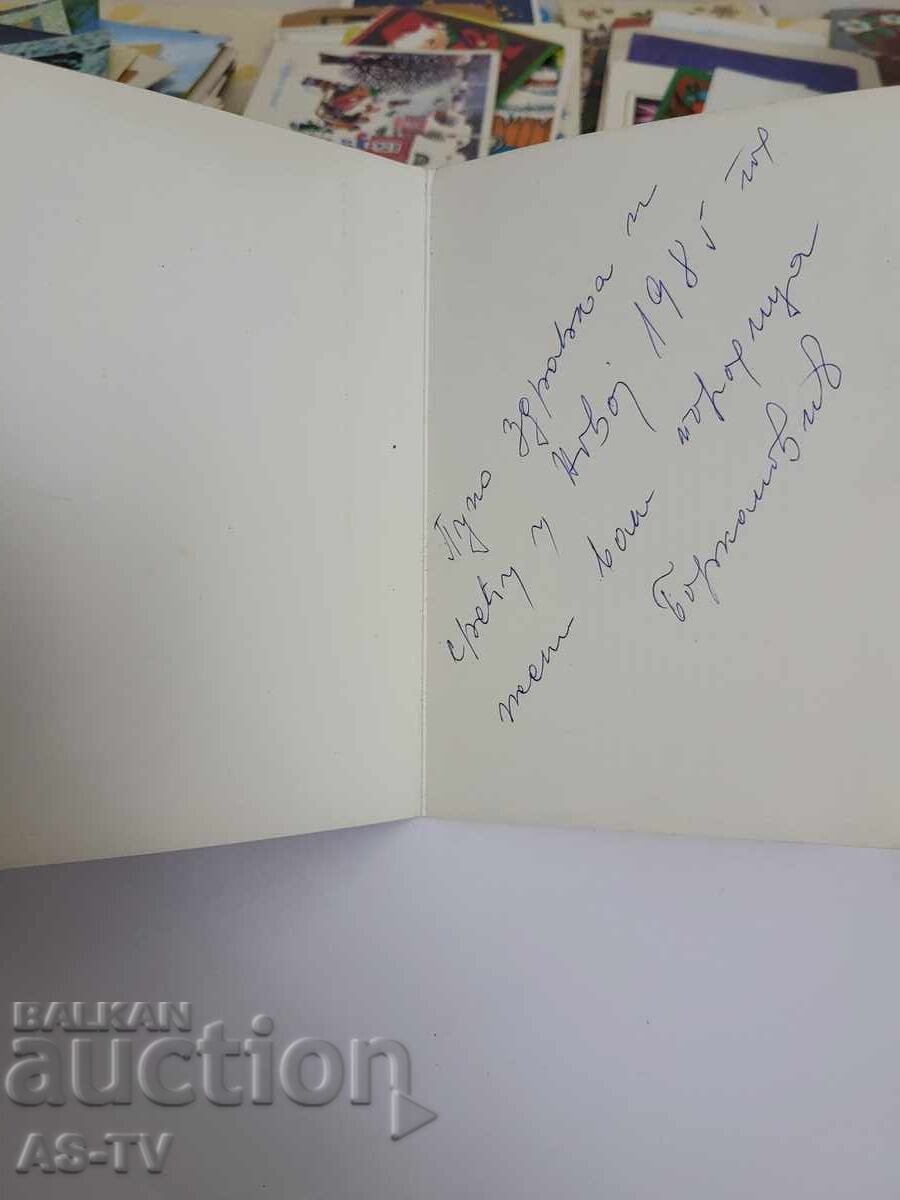 Пуно здравља и
срећу у Новој 1985 год
жели вам породица
Боркановић
BALKAN
auction
AS-TV